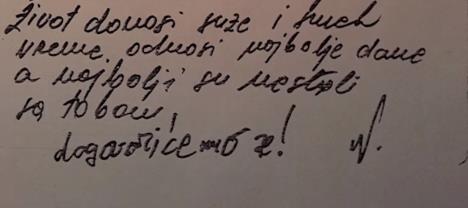 život donosi suze i smeh
vreme, odnosi najbolje dane
a najbolji su nestali
sa tobom,
dogorićemo se! N.